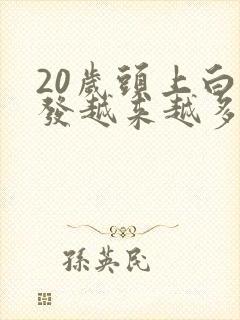 20歲頭上白
發越来越多
孫英民